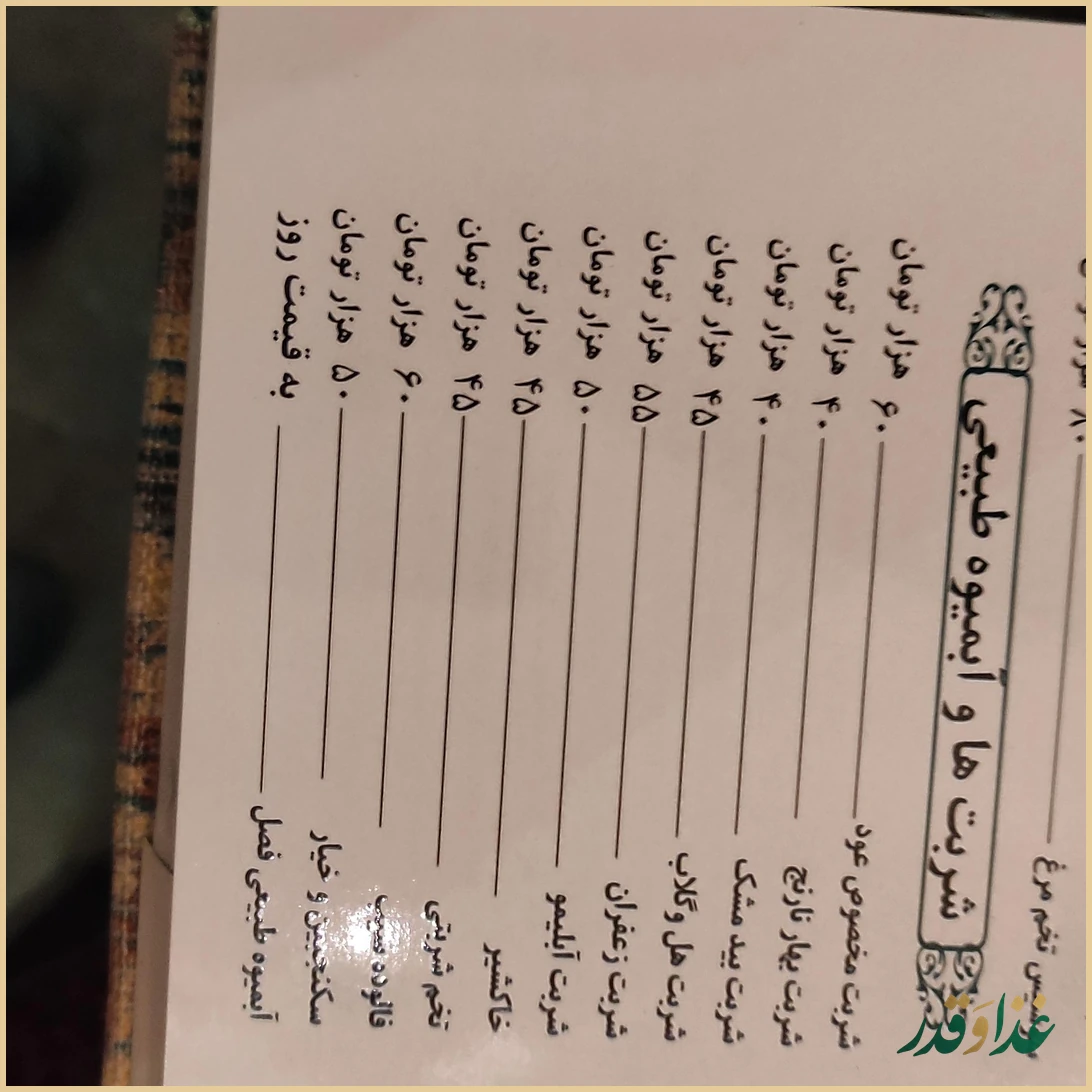 تخم مرغ ۸۰
شربت ها و آبمیوه طبیعی
شربت مخصوص عود ۶۰ هزار تومان
شربت بهار نارنج ۴۰ هزار تومان
شربت بید مشک ۴۰ هزار تومان
شربت هل و گلاب ۴۵ هزار تومان
شربت زعفران ۵۵ هزار تومان
شربت آبلیمو ۵۰ هزار تومان
خاکشیر ۴۵ هزار تومان
تخم شربتی ۴۵ هزار تومان
فالوده سیب ۶۰ هزار تومان
سکنجبین و خیار ۵۰ هزار تومان
آبمیوه طبیعی فصل به قیمت روز
غذا و قدر